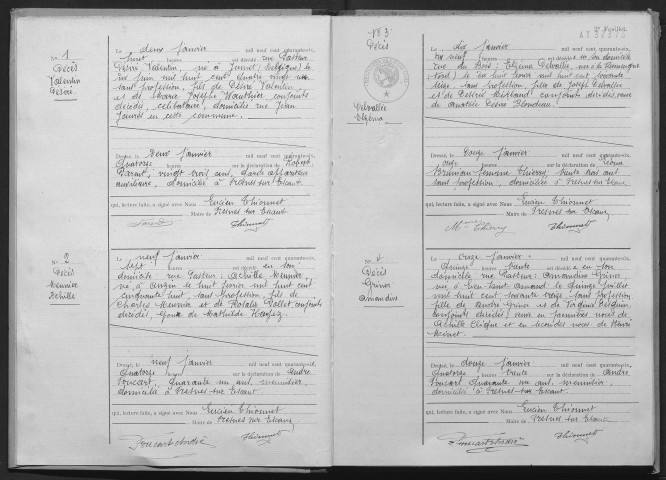 No 1
Décès
Valentin
Désiré
Le deux Janvier mil neuf cent quarante-six,
huit heures est décédé rue Pasteur
Désiré Valentin, né à Jumet (Belgique) le
six juin mil huit cent quatre vingt un
sans profession, fils de Désiré Valentin
et de Marie Josèphe Wauthier conjoints
décédés, célibataire, domicilié rue Jean
Jaurès en cette commune.
Dressé, le deux Janvier mil neuf cent quarante-six,
Quatorze heures sur la déclaration de
vingt trois ans, garde
auxiliaire, domicilié à Fresnes sur Escaut
qui, lecture faite, a signé avec Nous Lucien Thionnet
Maire de Fresnes sur Escaut
Thionnet
No 2
Décès
Meunier
Achille
Le neuf Janvier mil neuf cent quarante-six,
sept heures est décédé en son
domicile rue Pasteur: Achille Meunier,
né à Anzin le huit février mil huit cent
cinquante huit, sans profession, fils de
Charles Meunier et de Rosalie Pollet, conjoints
décédés, époux de Mathilde
Dressé, le neuf Janvier mil neuf cent quarante-six,
Quatorze heures sur la déclaration de André
Foucart, Quarante un ans, menuisier,
domicilié à Fresnes sur Escaut
qui, lecture faite, a signé avec Nous Lucien Thionnet
Maire de Fresnes sur Escaut
Foucart André Thionnet
2e Feuillet.
No 3
Décès
Delvallée
Elzéna
Le dix Janvier mil neuf cent quarante-six,
neuf heures est décédée en son domicile
rue du Bois: Elzéna Delvallée, née à
(Nord) le dix huit février mil huit cent soixante
sans profession, fille de Joseph Delvallée
et de Désirée conjoints décédés, veuve
de Amatée Désiré Blondeau.
Dressé, le douze Janvier mil neuf cent quarante-six,
onze heures sur la déclaration de
Simone Thierry, trente trois ans
sans profession, domiciliée à Fresnes sur Escaut
qui, lecture faite, a signé avec Nous Lucien Thionnet
Maire de Fresnes sur Escaut
Thierry Thionnet
No 4
Décès
Griner
Amandine
Le onze Janvier mil neuf cent quarante-six,
Quinze heures trente est décédée en son
domicile rue Pasteur: Amandine Griner,
née à Saint Amand le quinze juillet
mil huit cent soixante treize sans profession,
fille de André Griner et de Virginie
conjoints décédés, veuve en premières noces de
Achille Clique et en secondes noces de Henri
Dressé, le douze Janvier mil neuf cent quarante-six,
Quatorze heures trente sur la déclaration de André
Foucart, Quarante un ans, menuisier,
domicilié à Fresnes sur Escaut
qui, lecture faite, a signé avec Nous Lucien Thionnet
Maire de Fresnes sur Escaut
Foucart André Thionnet